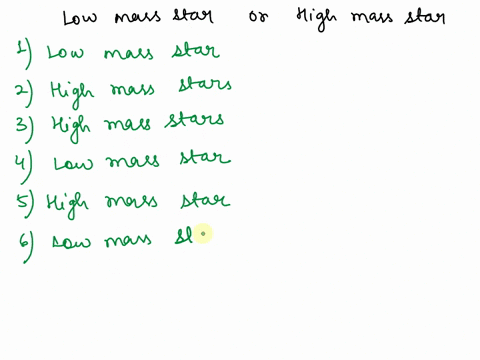 Low mass star or High mass star
1) Low mass star
2) High mass stars
3) High mass stars
4) Low mass star
5) High mass star
6) Low mass